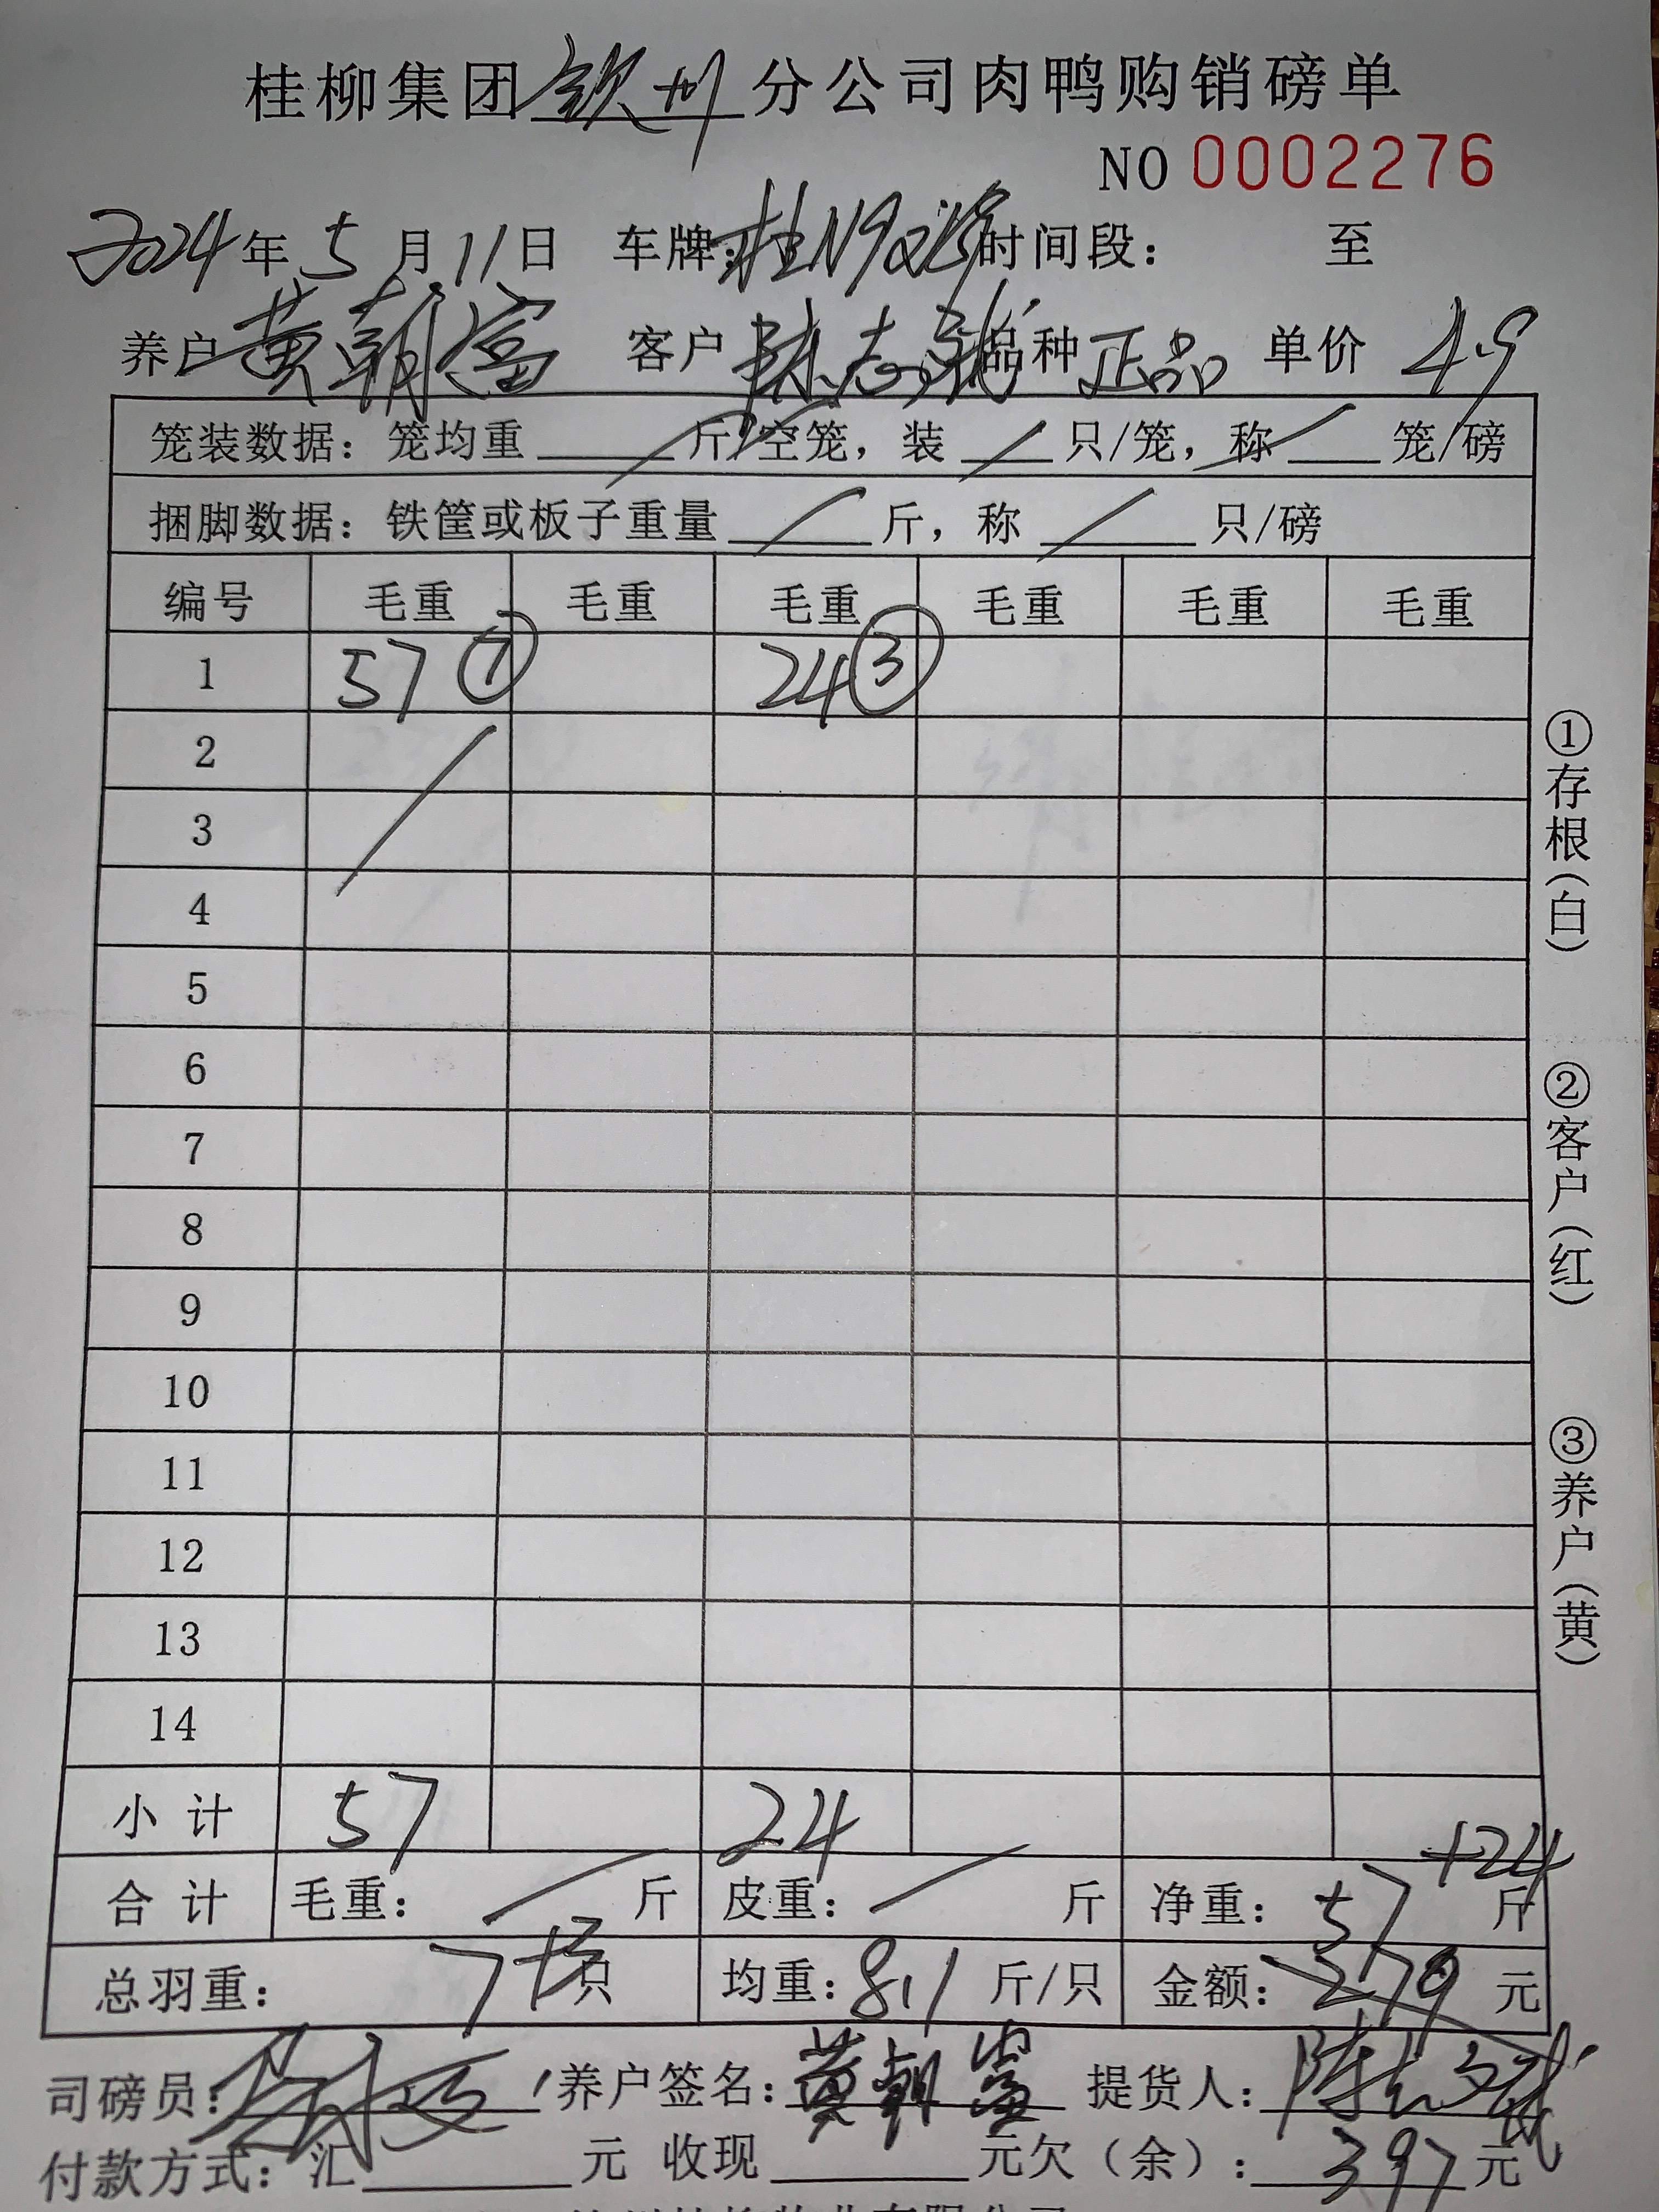 桂柳集团钦州分公司肉鸭购销磅单
NO 0002276
2024年5月11日 车牌:桂N9 时间段: 至
养户黄朝富 客户陈志 品种正品 单价4.9
笼装数据: 笼均重 / 斤/空笼, 装 / 只/笼, 称 / 笼/磅
捆脚数据: 铁筐或板子重量 / 斤, 称 / 只/磅
编号 毛重 毛重 毛重 毛重 毛重 毛重
1 57 ⑦ 24 ③
2 /
3
4
5
6
7
8
9
10
11
12
13
14
小计 57 24
合计 毛重: / 斤 皮重: / 斤 净重: 57+24 斤
总羽重: 7+3只 均重: 8.1 斤/只 金额: 279 元
司磅员: 养户签名: 黄朝富 提货人: 陈志
付款方式: 汇 元 收现 元欠(余): 397元
①存根(白)
②客户(红)
③养户(黄)